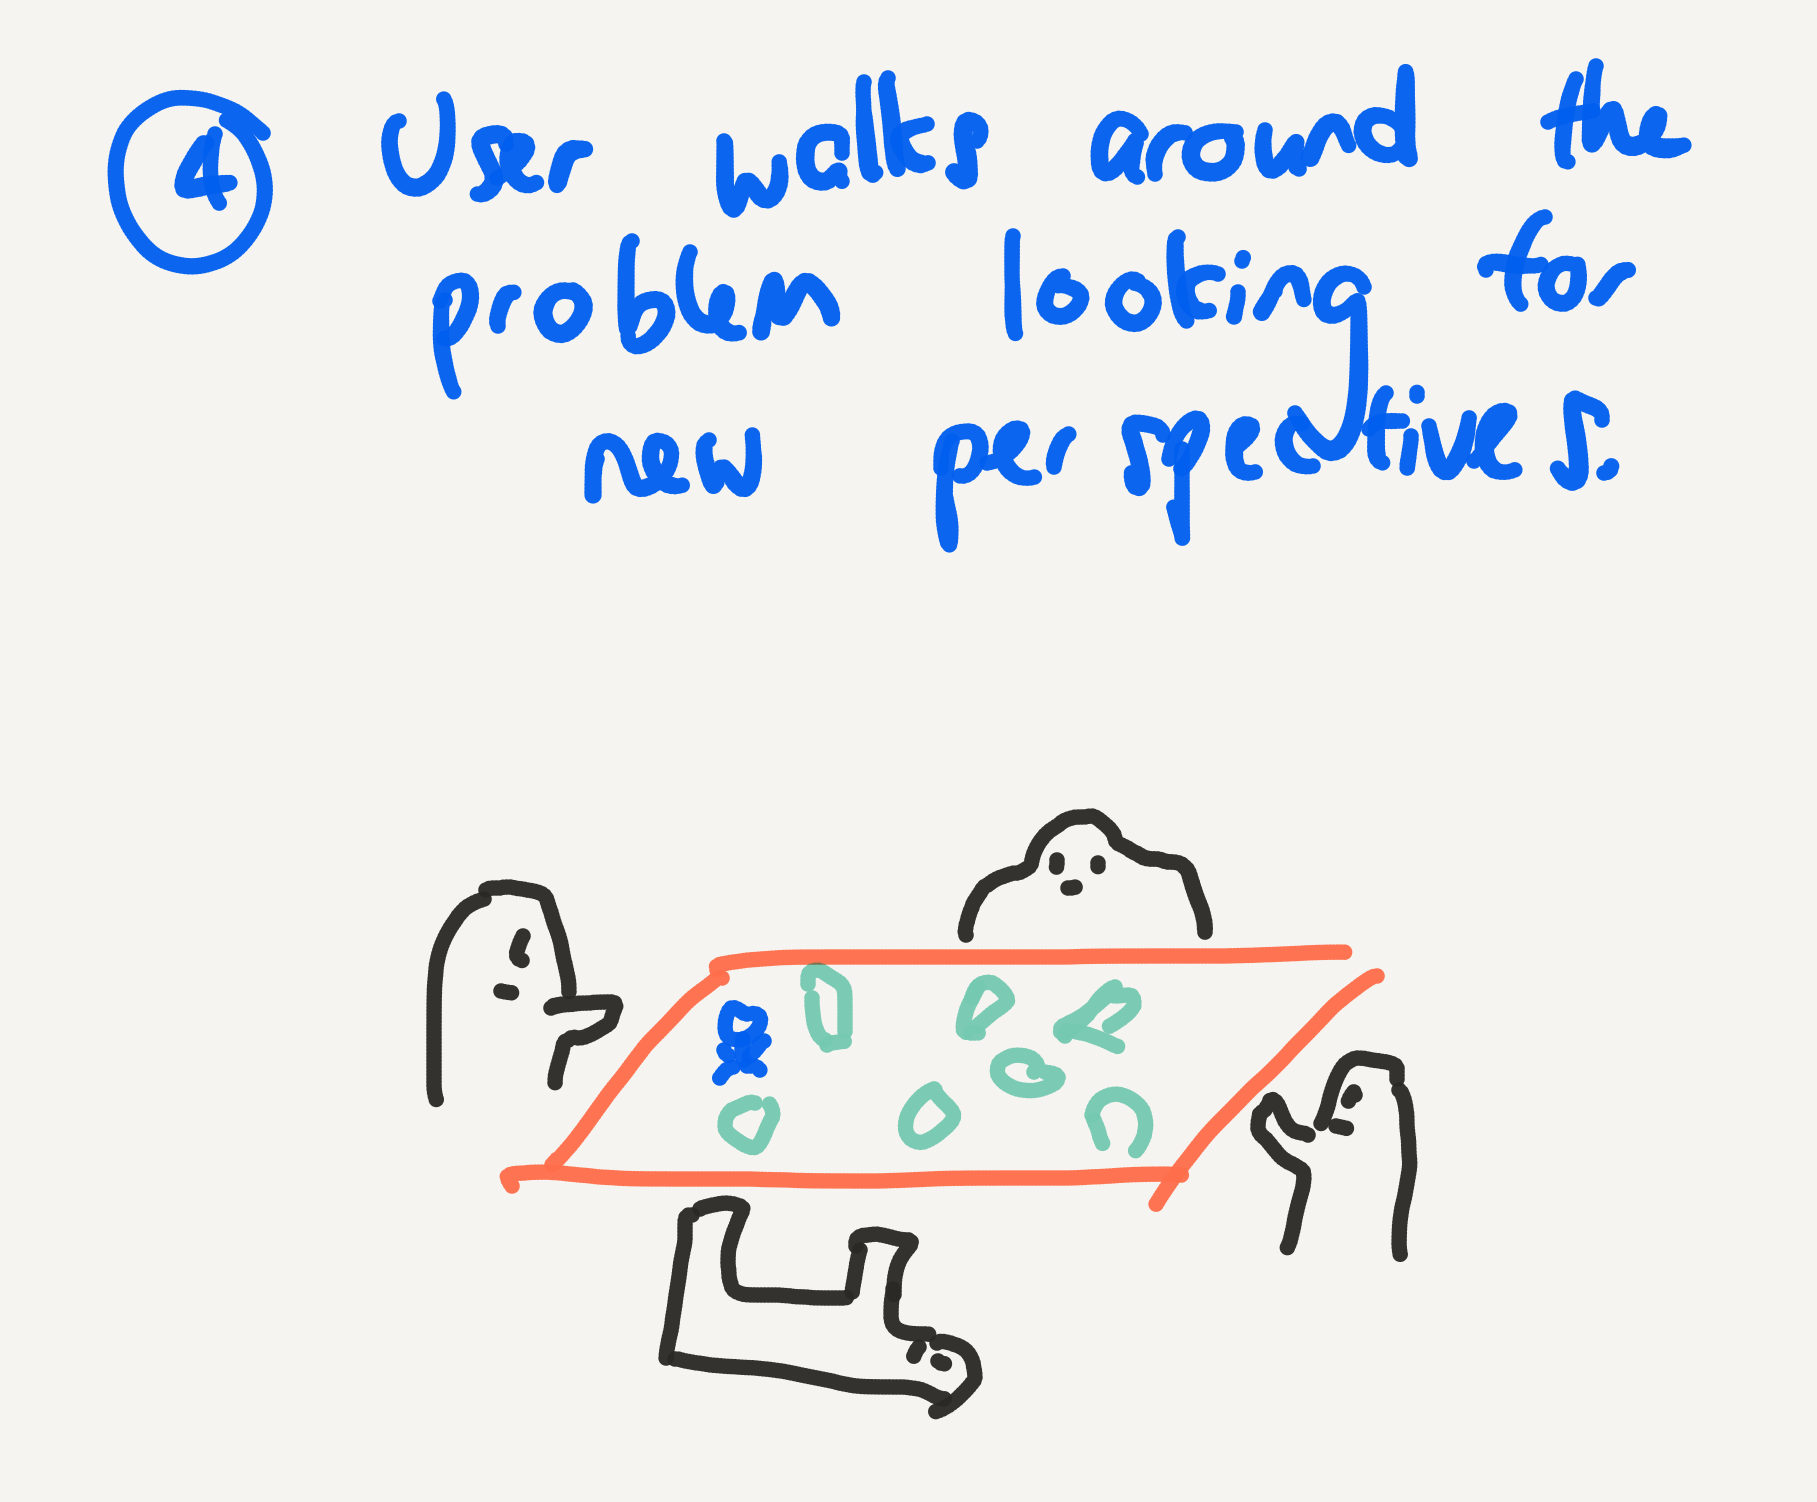 4 User walks around the
problem looking for
new perspectives.